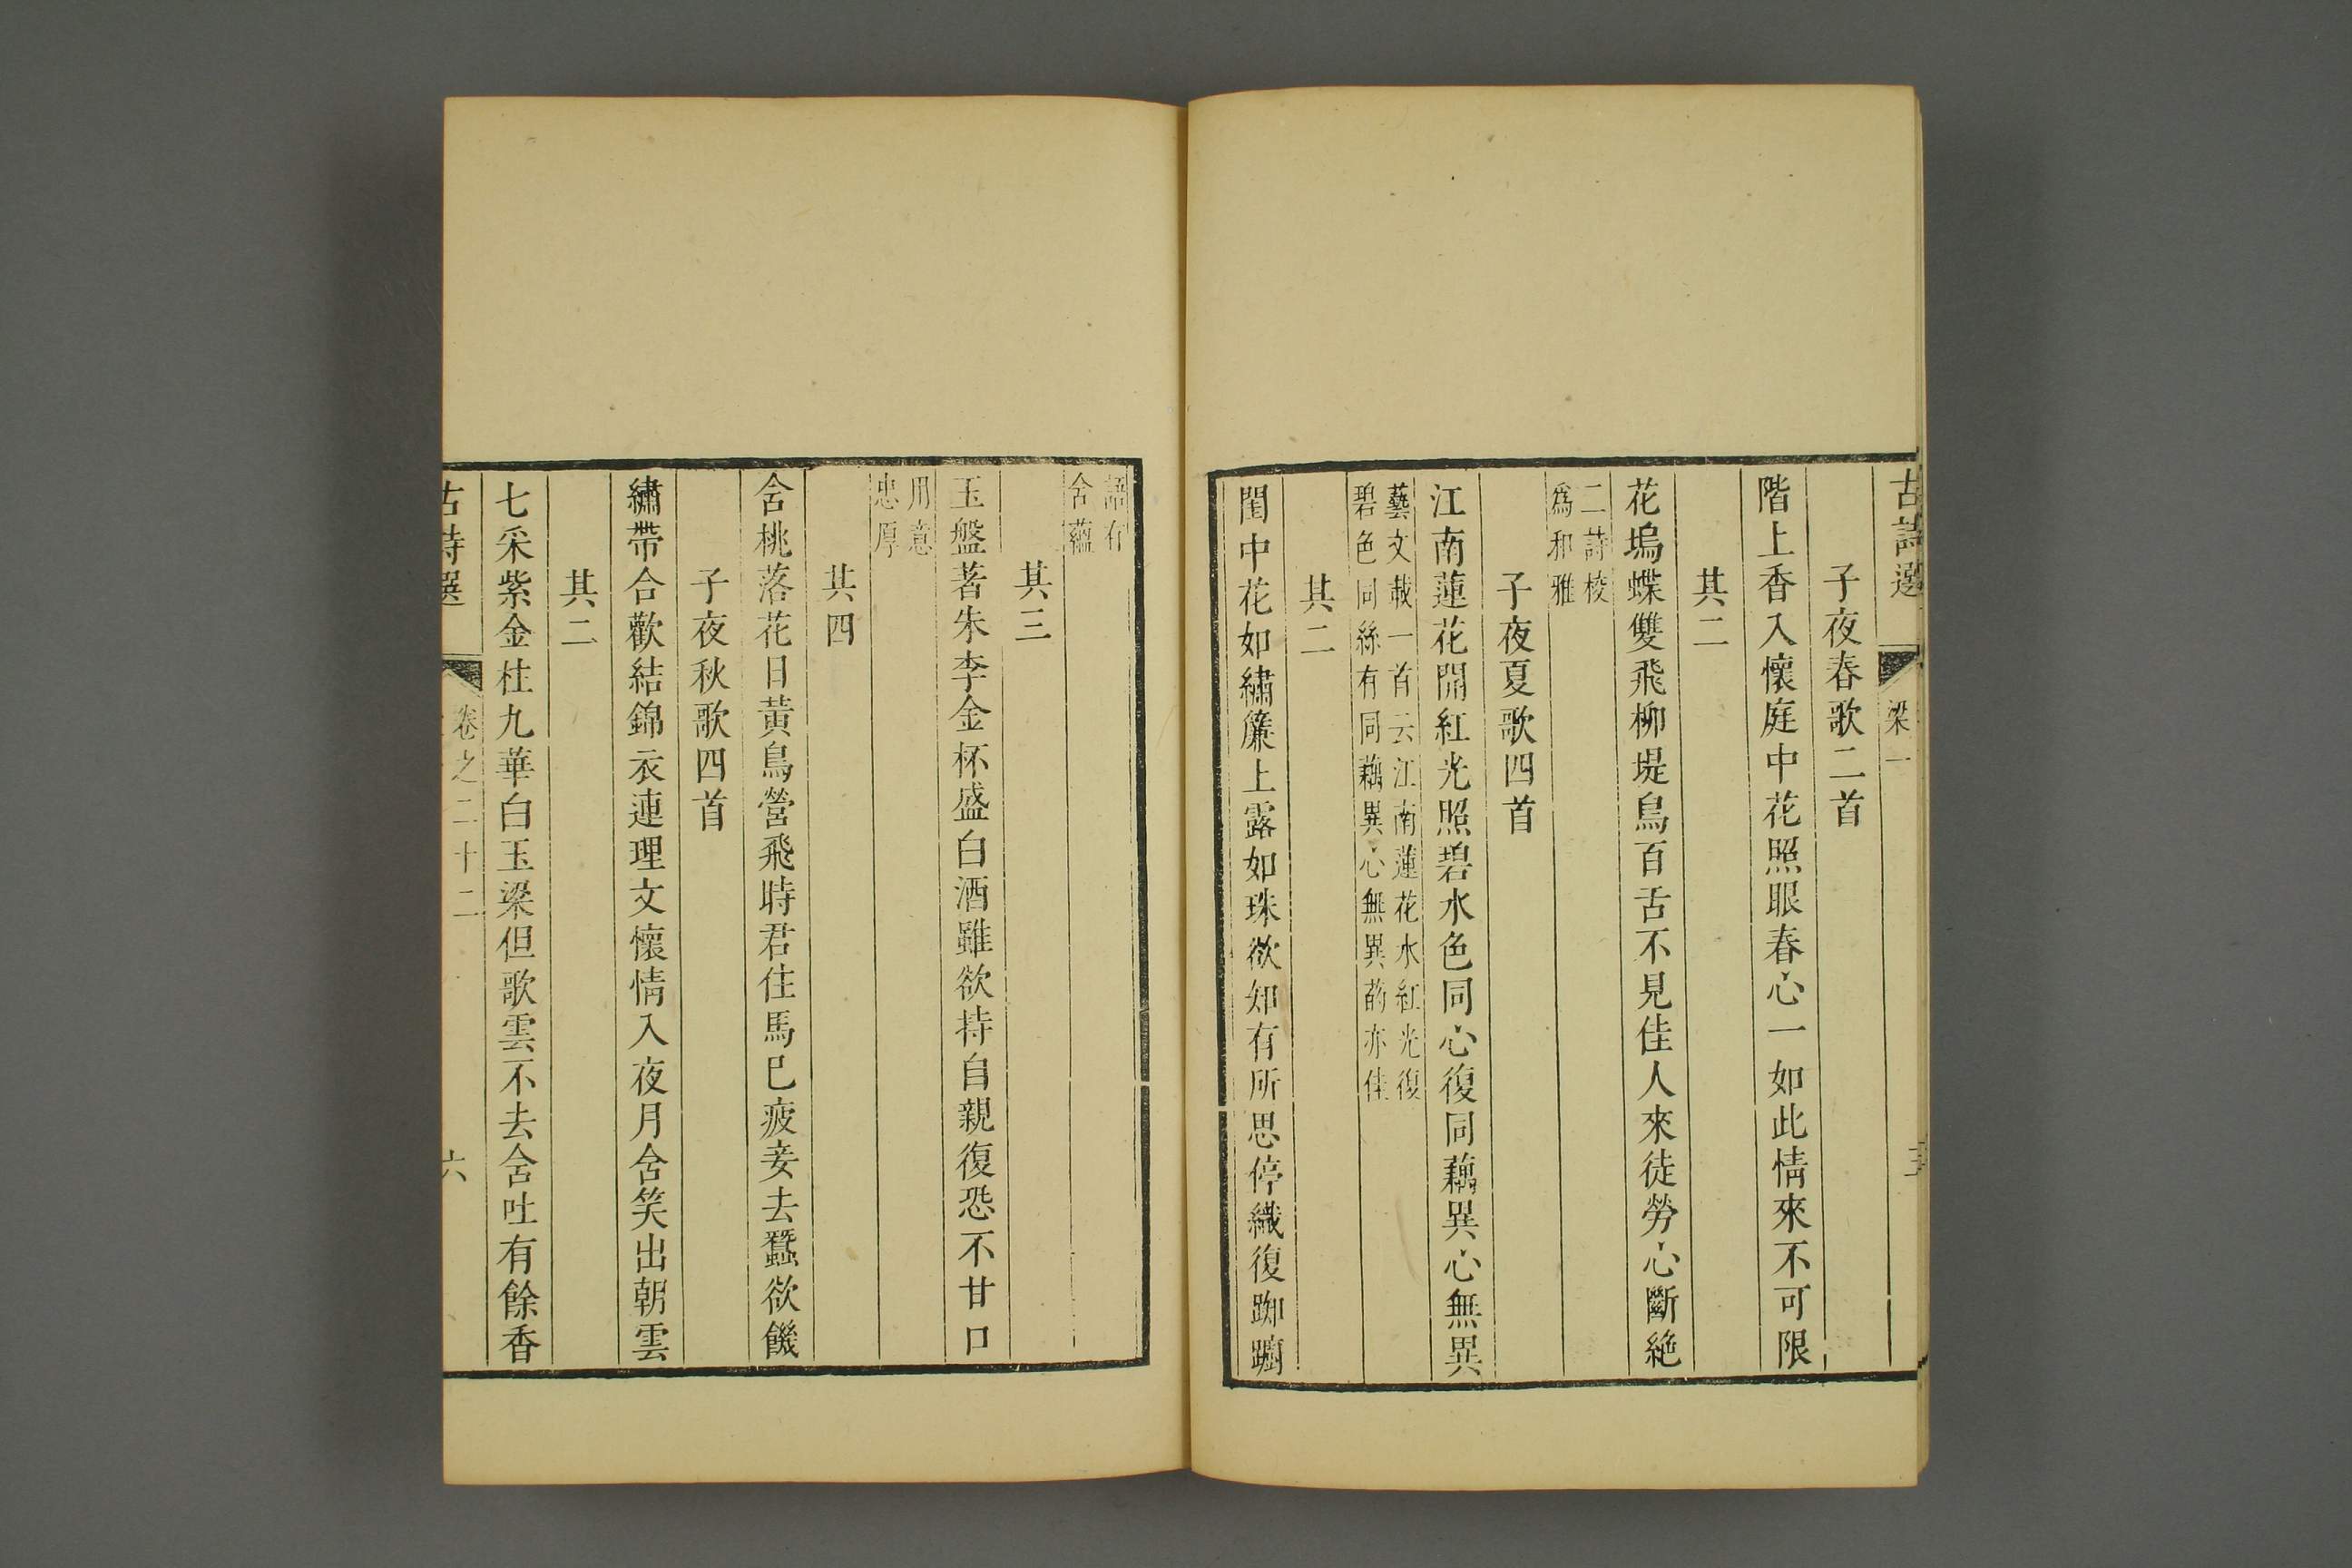 古詩選 梁一
子夜春歌二首
階上香入懷庭中花照眼春心一如此情來不可限
其二
花塢蝶雙飛柳堤鳥百舌不見佳人來徒勞心斷絕
二詩稜
爲和雅
子夜夏歌四首
江南蓮花開紅光照碧水色同心復同藕異心無異
藝文載一首云江南蓮花水紅光復
碧色同絲有同藕異心無異菂亦佳
其二
閨中花如繡簾上露如珠欲知有所思停織復踟躕
語有
含蘊
其三
玉盤著朱李金杯盛白酒雖欲持自親復恐不甘口
用意
忠厚
其四
含桃落花日黃鳥營飛時君住馬已疲妾去蠶欲饑
子夜秋歌四首
繡帶合歡結錦衣連理文懷情入夜月含笑出朝雲
其二
七采紫金柱九華白玉梁但歌雲不去含吐有餘香
古詩選 卷之二十二 六